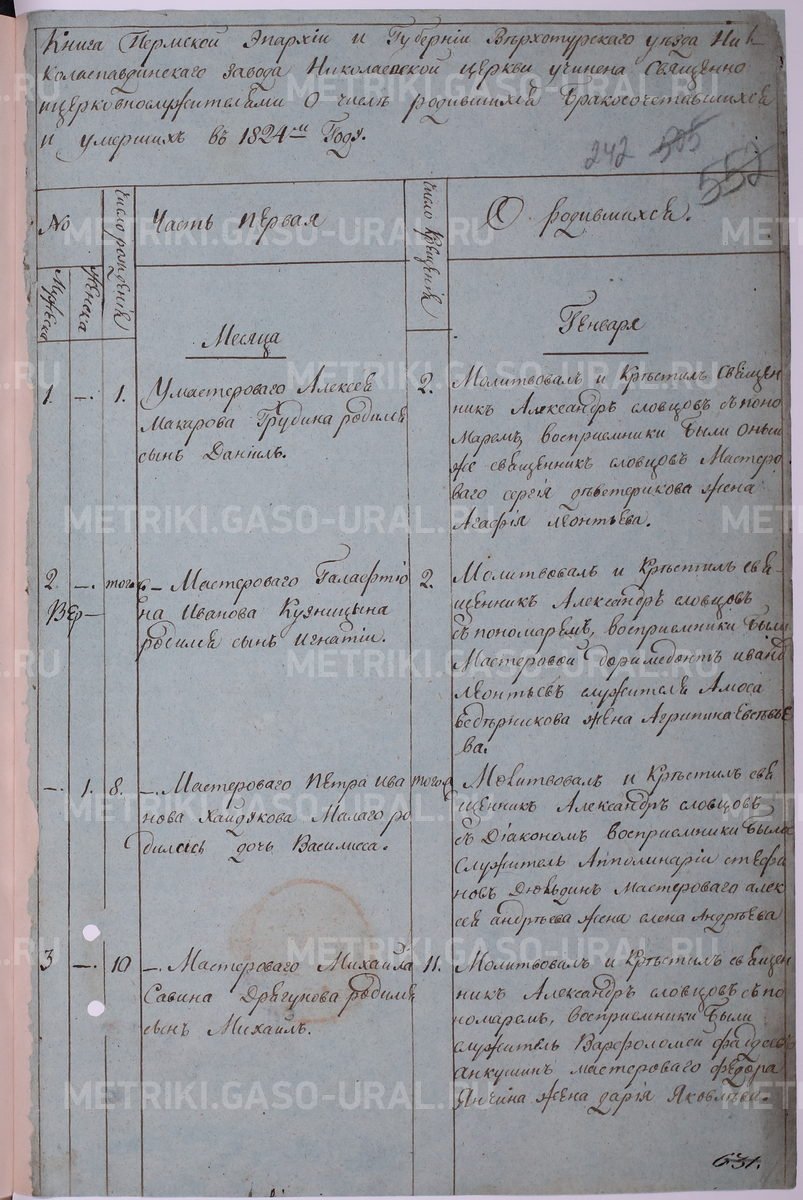 Книга Пермской Эпархіи и Губерніи Верхотурскаго уезда Ни
колаепавдинскаго завода Николаевской церкви учинена Священно
ицерковнослужителами О числе родившихся Бракосочетавшихся
и умершихъ въ 1824м Годѣ.
242 505
552
№
Мужеска
Женска
число рожденія
Часть первая
число крещенія
О родившихся.
Месяца
Генваря
1. —. 1. Умастероваго Алексея
Макарова Трубина родился
сынъ Даніилъ.
2. Молитвовалъ и Крѣстилъ Священ
никъ Александръ словцовъ съ поно
маремъ, восприемники были оный
же священникъ словцовъ Мастеро
ваго сергія жена
Агафія леонтьева.
2. —. тогож — Мастероваго Галафтіо
Вер— на Иванова Кузницына
родился сынъ игнатіи.
2. Молитвовалъ и Крѣстилъ свя
щенникъ Александръ словцовъ
съ пономаремъ, восприемники были
Мастеровой доримедонтъ иванъ
леонтьевъ служителя Амоса
ведерникова жена Агрипина
ва.
—. 1. 8. —. Мастероваго Петра ива
нова Хайдукова Малаго ро
дилась дочь Василисса.
тогож Молитвовалъ и Крѣстилъ свя
щенникъ Александръ словцовъ
съ Діакономъ восприемники была
служитель Апполинаріи стефа
новъ Мастероваго алек
сея андреева жена елена Андрѣева
3 —. 10 —. Мастероваго Михаила
Савина Драгунова родился
сынъ Михаилъ.
11. Молитвовалъ и Крѣстилъ священ
никъ Александръ словцовъ съ по
номаремъ, восприемники были
служитель Варфоломей
анкушинъ мастероваго федора
Янчина жена дарія Яковлева.
631.
METRIKI.GASO-URAL.RU